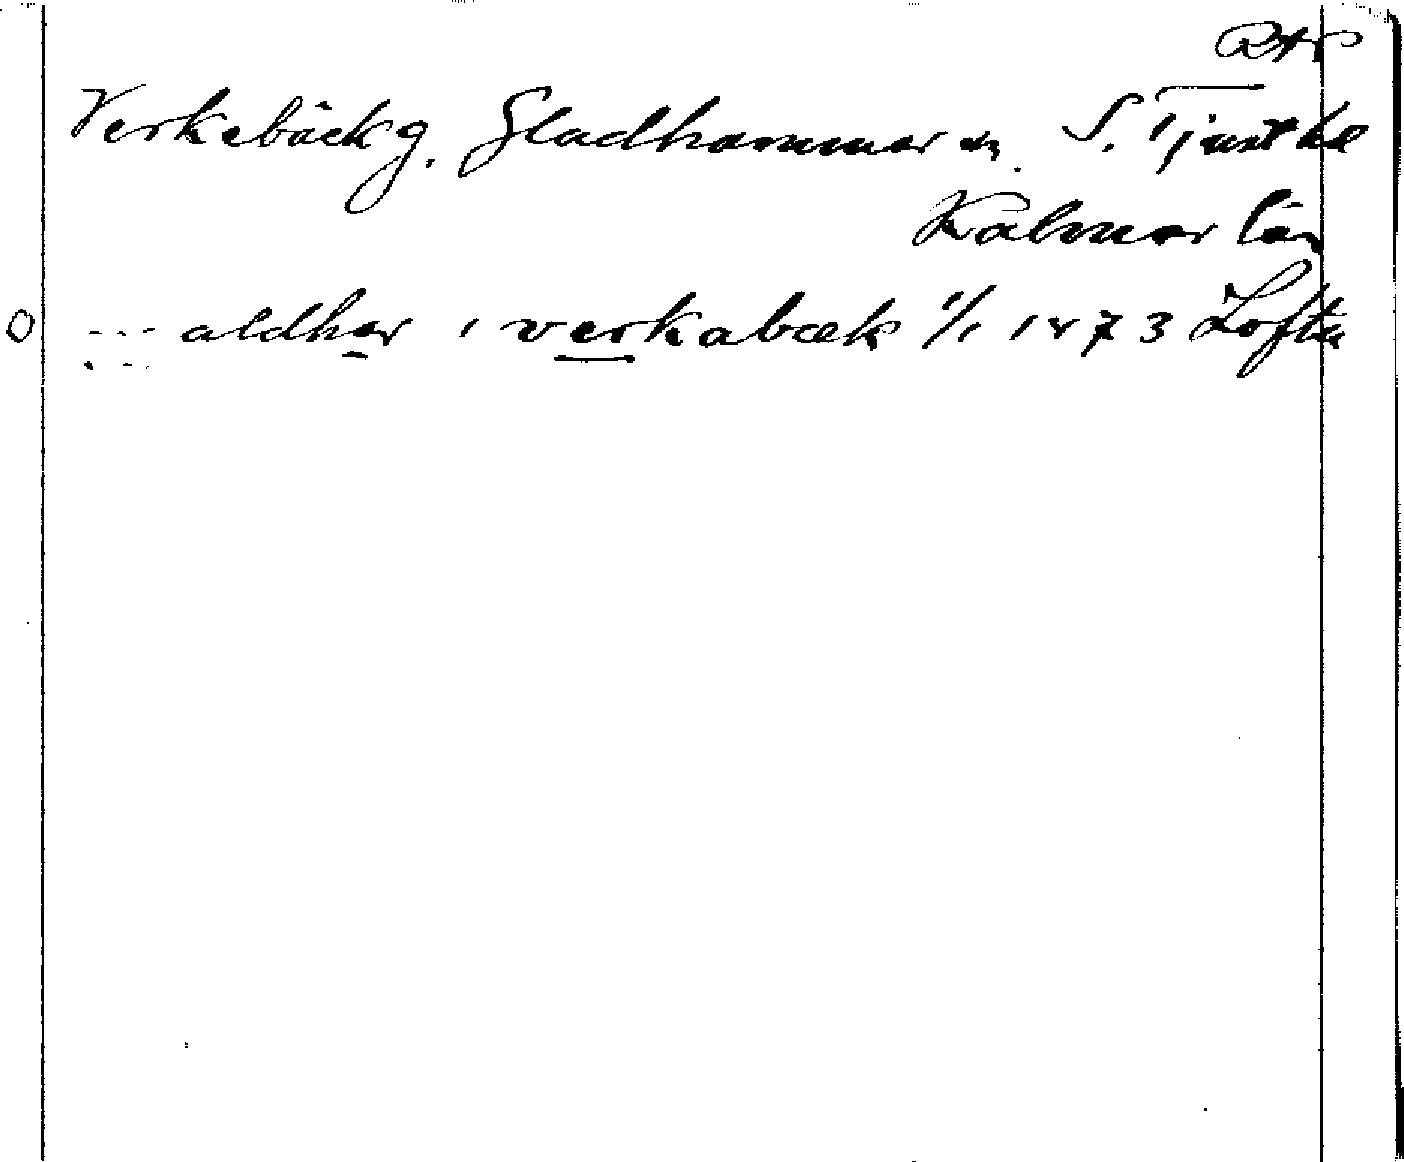 RAp
Verkebäck g. Gladhammar sn. S. Tjust hd
Kalmar län
O --- aldhar i verkabæk 1/1 1873 Lofta